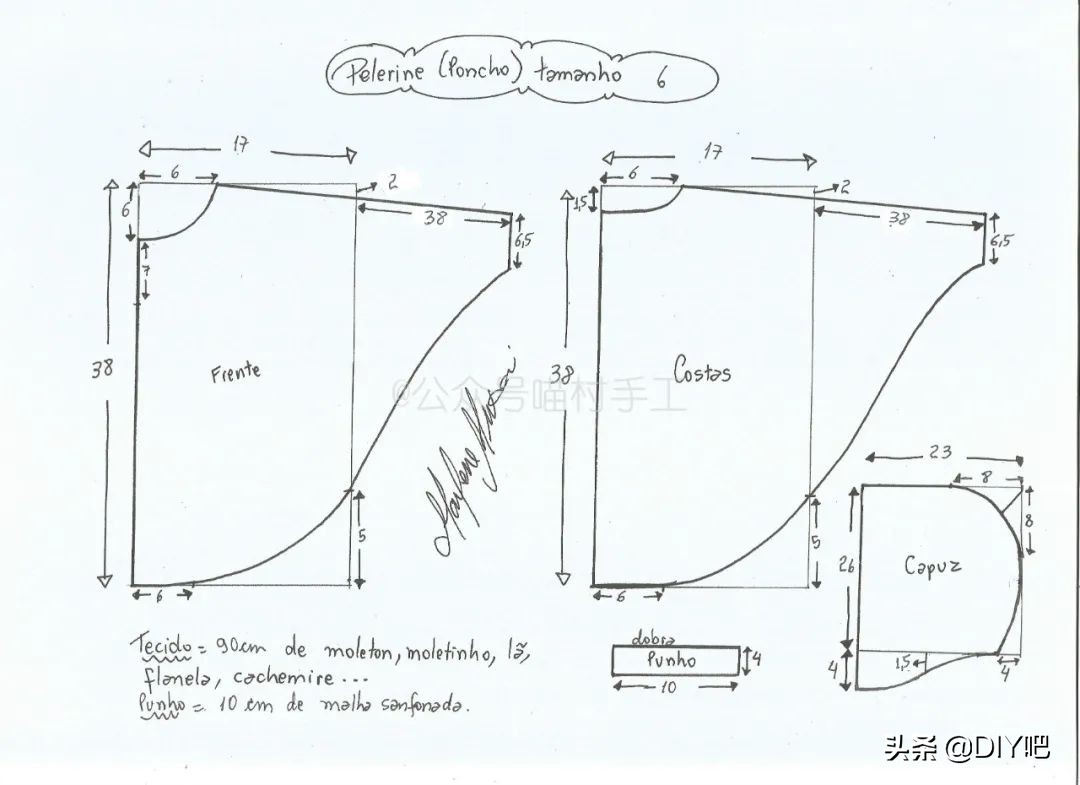 Pelerine (Poncho) tamanho 6
17
6
2
6
38
6,5
7
38
Frente
5
6
17
6
2
1,5
38
6,5
38
Costas
5
6
@公众号喵村手工
23
8
8
26
Capuz
1,5
4
4
dobra
Punho
4
10
Tecido = 90cm de moleton, moletinho, lã,
flanela, cachemire ...
Punho = 10 cm de malha sanfonada.
头条 @DIY吧